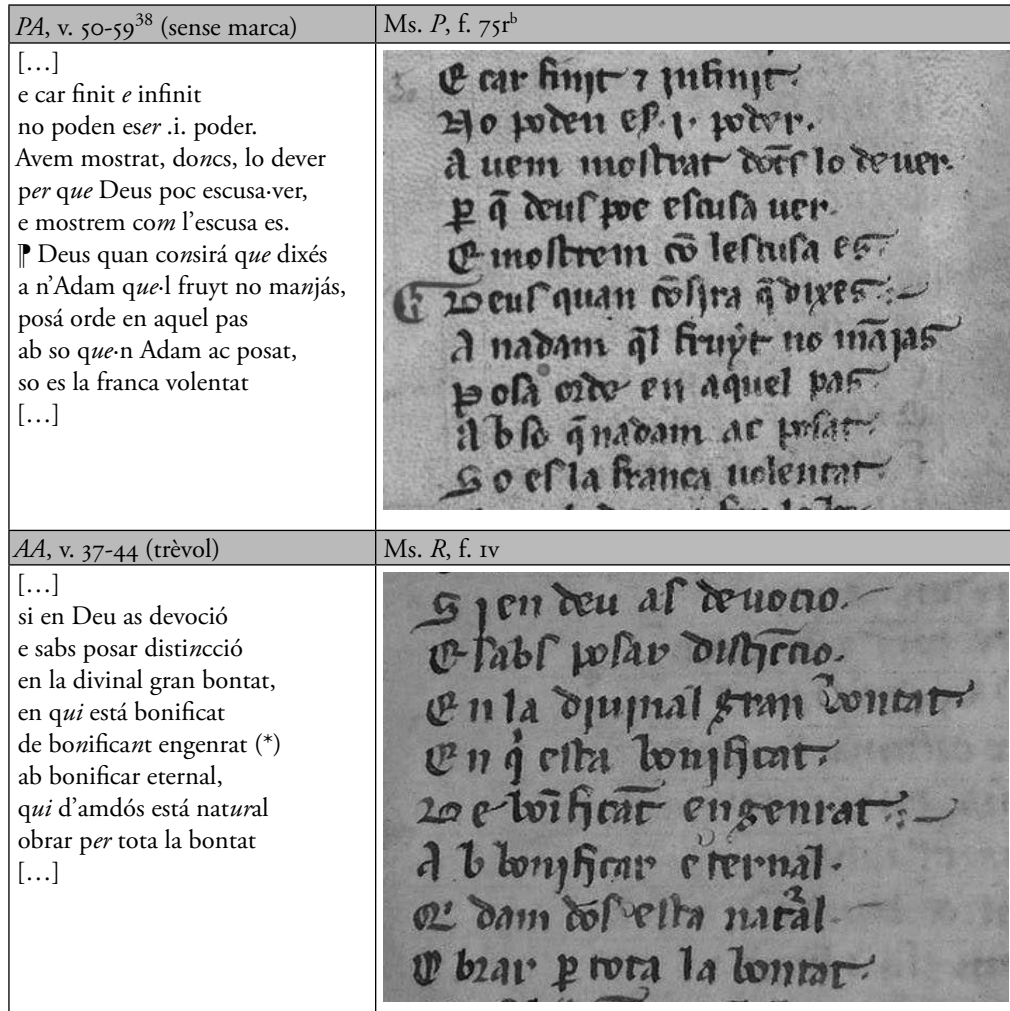 PA, v. 50-59³⁸ (sense marca)
Ms. P, f. 75rᵇ
[…]
e car finit e infinit
no poden eser .i. poder.
Avem mostrat, doncs, lo dever
per que Deus poc escusa·ver,
e mostrem com l'escusa es.
⁋ Deus quan consirá que dixés
a n'Adam que·l fruyt no manjás,
posá orde en aquel pas
ab so que·n Adam ac posat,
so es la franca volentat
[…]
E car finit ⁊ infinit.
No poden eſ .i. poder.
A uem moſtrat dōcſ lo deuer.
ꝑ q̄ deuſ poc eſcuſa uer.
E moſtrem cō leſcuſa es.
Deuſ quan cōſira q̄ dixes.
A nadam q̄l fruẏt no mājas
Poſa orde en aquel pas.
A b ſo q̄nadam ac poſat.
So eſ la franca uolentat.
AA, v. 37-44 (trèvol)
Ms. R, f. 1v
[…]
si en Deu as devoció
e sabs posar distincció
en la divinal gran bontat,
en qui está bonificat
de bonificant engenrat (*)
ab bonificar eternal,
qui d'amdós está natural
obrar per tota la bontat
[…]
S i en deu aſ deuocio.
E ſabſ poſar diſtīccio.
E n la diuinal gran bontat.
E n q eſta bonificat.
De boīficāt engenrat.
A b bonificar eternal.
Q dam doſ eſta natal
O brar ꝑ tota la bontat.